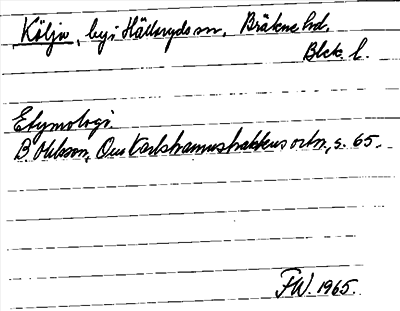 Kölja, by i Hällaryds sn, Bräkne hd.
Blek. l.
Etymologi
B Ohlsson, Om Karlshamnstraktens ortn., s. 65.
FW. 1965.